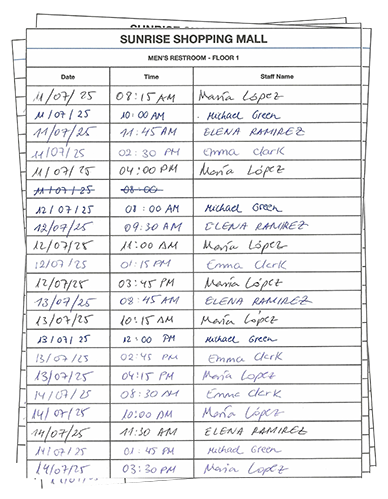 SUNRISE SHOPPING MALL
MEN'S RESTROOM - FLOOR 1
Date Time Staff Name
11/07/25 08:15 AM María López
11/07/25 10:00 AM Michael Green
11/07/25 11:45 AM ELENA RAMIREZ
11/07/25 02:30 PM Emma Clark
11/07/25 04:00 PM María López
11/07/25 08:00
12/07/25 08:00 AM Michael Green
12/07/25 09:30 AM ELENA RAMIREZ
12/07/25 11:00 AM María López
12/07/25 01:15 PM Emma Clark
12/07/25 03:45 PM María López
13/07/25 08:45 AM ELENA RAMIREZ
13/07/25 10:15 AM María López
13/07/25 12:00 PM Michael Green
13/07/25 02:45 PM Emma Clark
13/07/25 04:15 PM María López
14/07/25 08:30 AM Emma Clark
14/07/25 10:00 AM María López
14/07/25 11:30 AM ELENA RAMIREZ
14/07/25 01:45 PM Michael Green
14/07/25 03:30 PM María López